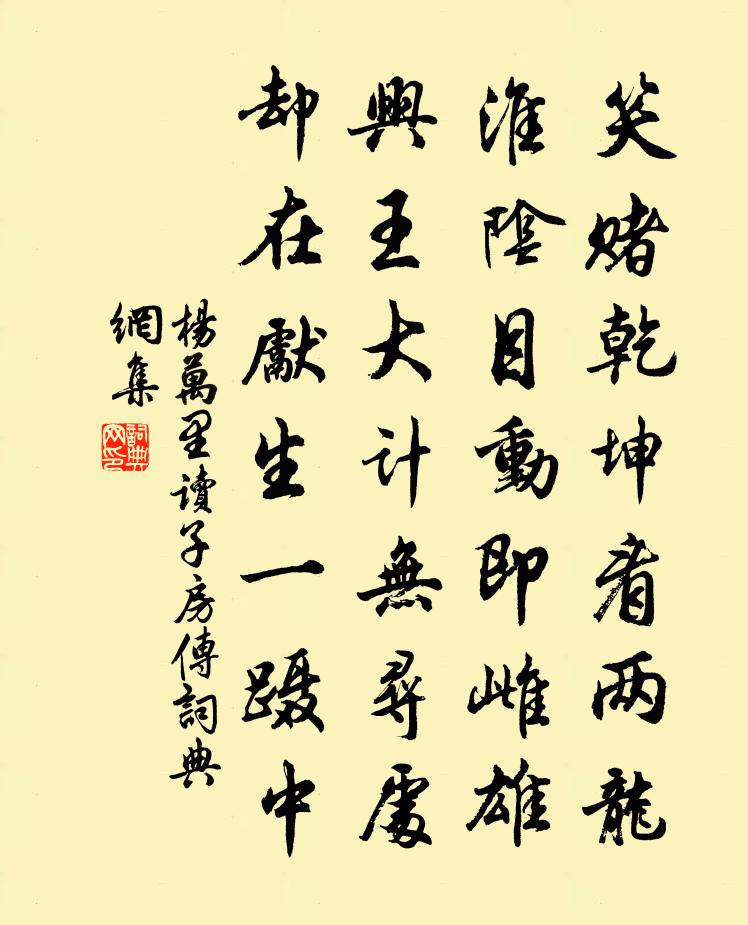 笑赌乾坤看两龍
淮陰目動即雌雄
興王大计無尋處
却在獻生一蹑中
楊萬里讀子房傳詞典
網集
詞典網印